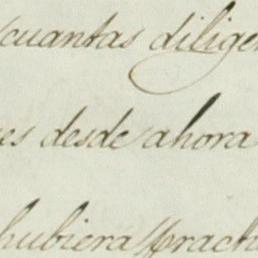 cuantas dilige
es desde ahora
hubiera